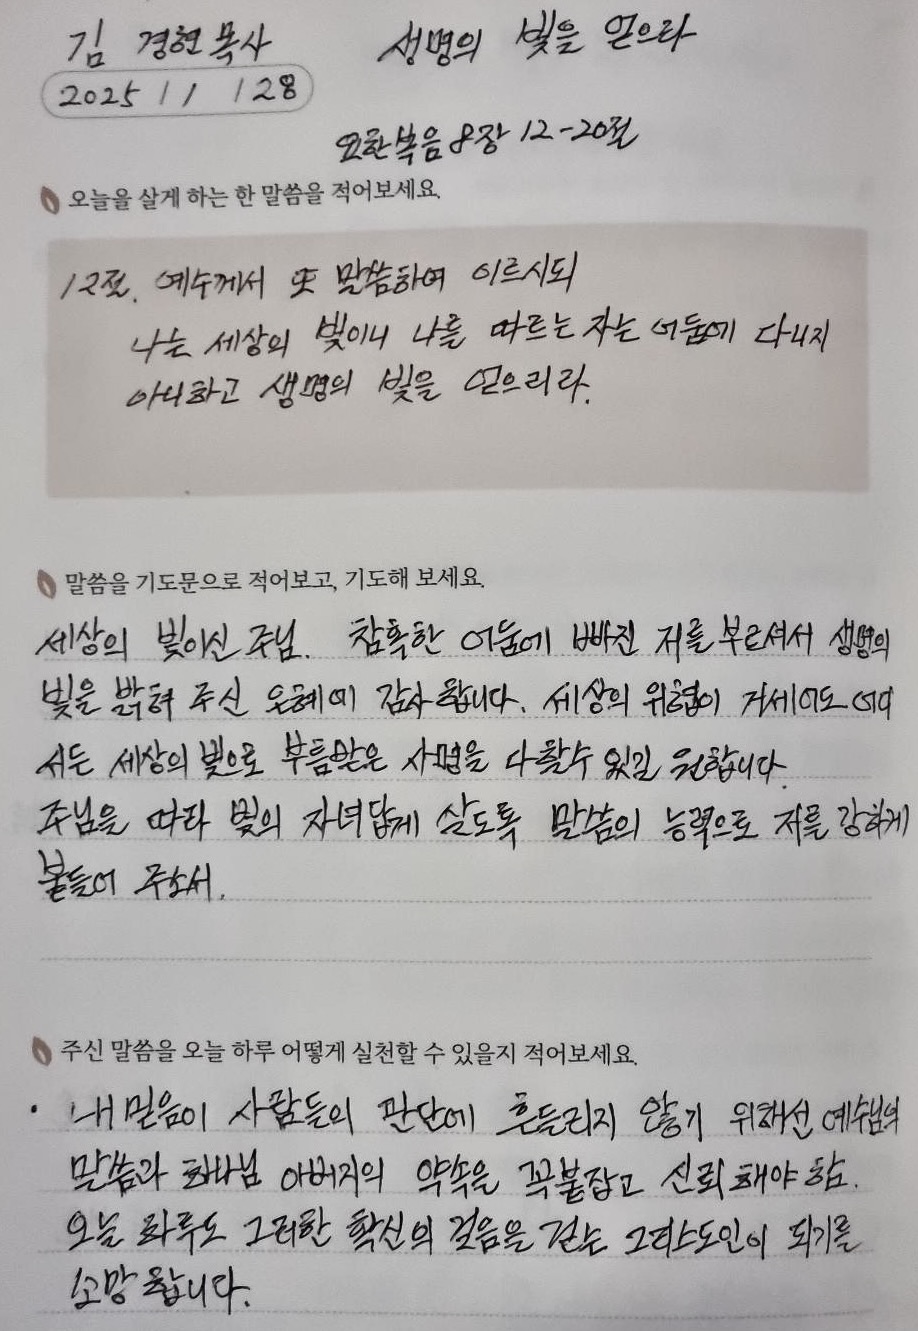 김 경현목사 생명의 빛을 얻으라
2025 / 1 / 28
요한복음 8장 12-20절
오늘을 살게 하는 한 말씀을 적어보세요.
12절. 예수께서 또 말씀하여 이르시되
나는 세상의 빛이니 나를 따르는 자는 어둠에 다니지
아니하고 생명의 빛을 얻으리라.
말씀을 기도문으로 적어보고, 기도해 보세요.
세상의 빛이신 주님. 참혹한 어둠에 빠진 저를 부르셔서 생명의
빛을 밝혀 주신 은혜에 감사합니다. 세상의 위협이 거세어도 어디
서든 세상의 빛으로 부름받은 사명을 다할수 있길 원합니다.
주님을 따라 빛의 자녀답게 살도록 말씀의 능력으로 저를 강하게
붙들어 주소서.
주신 말씀을 오늘 하루 어떻게 실천할 수 있을지 적어보세요.
· 내 믿음이 사람들의 판단에 흔들리지 않기 위해선 예수님의
말씀과 하나님 아버지의 약속을 꼭붙잡고 신뢰해야 함.
오늘 하루도 그러한 확신의 걸음을 걷는 그리스도인이 되기를
소망합니다.